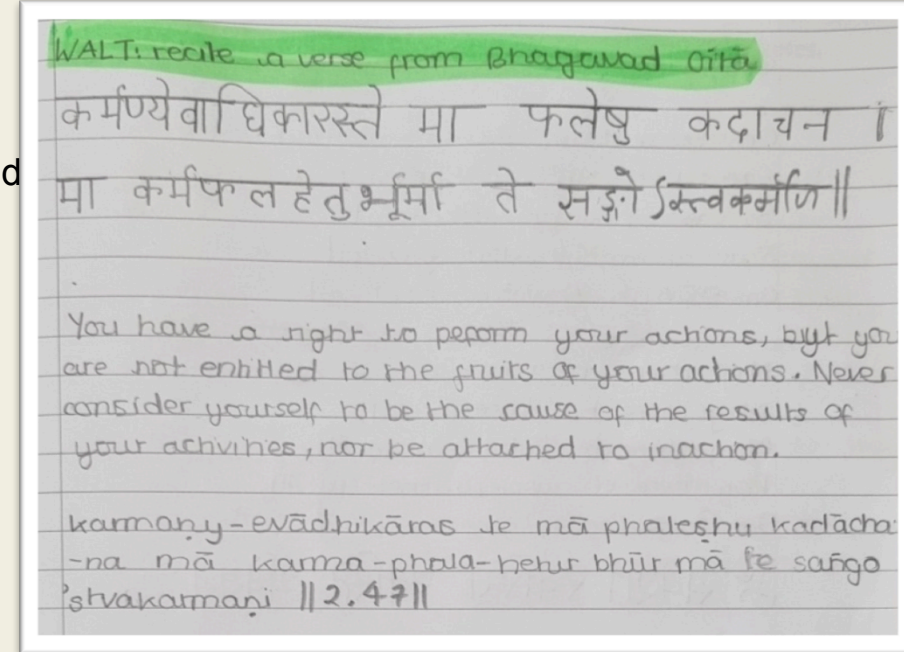 WALT: recite a verse from Bhagavad Gītā
कर्मण्येवाधिकारस्ते मा फलेषु कदाचन ।
d
मा कर्मफलहेतुर्भूर्मा ते सङ्गोऽस्त्वकर्मणि॥
You have a right to peform your actions, buyt you
are not entitled to the fruits of your actions. Never
consider yourself to be the cause of the results of
your activities, nor be attached to inaction.
karmaṇy-evādhikāras te mā phaleṣhu kadācha
-na mā karma-phala-hetur bhūr mā te saṅgo
'stvakarmaṇi ||2.47||